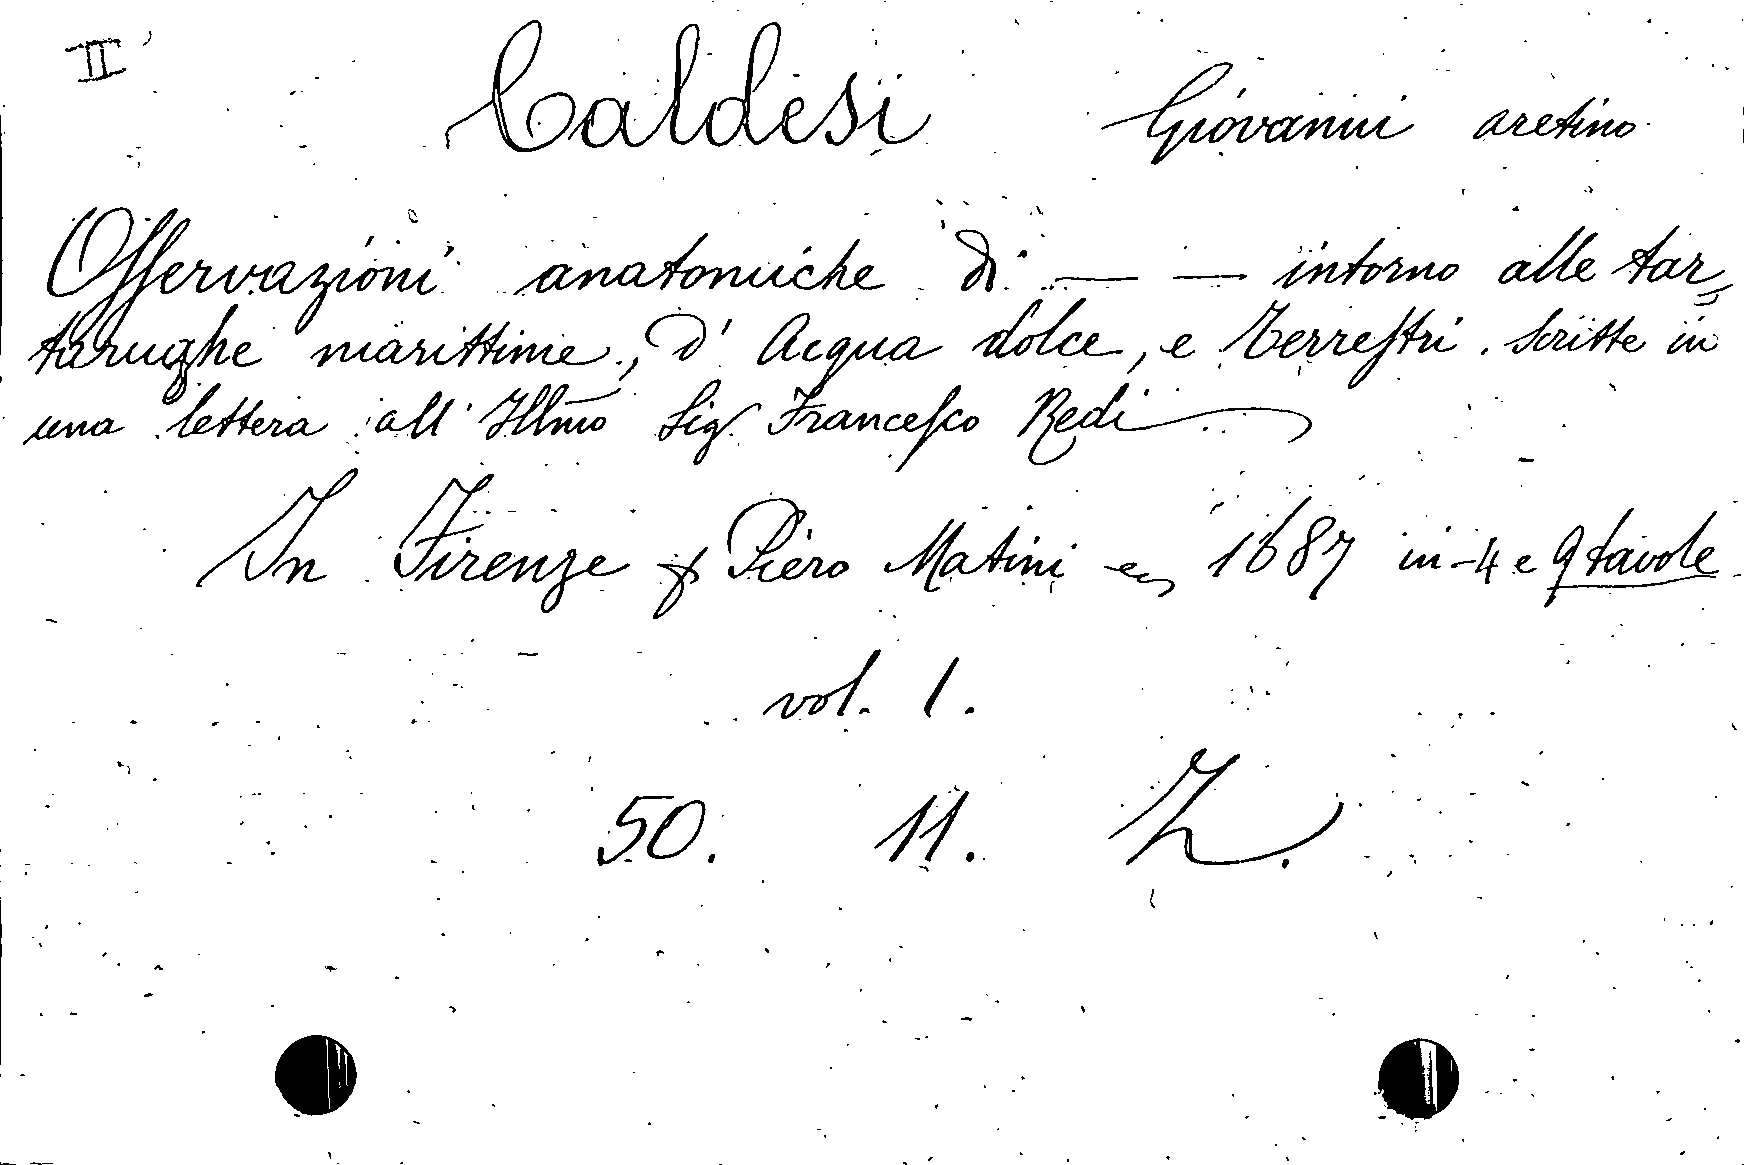 II
Caldesi Giovanni aretino
Osservazioni anatomiche di — — intorno alle tar=
tarughe marittime, d'Acqua dolce, e Terrestri. Scritte in
una lettera all' Illmo Sig. Francesco Redi
In Firenze p Piero Matini 1687 in-4 e 9 tavole
vol. 1.
50. 11. Z.